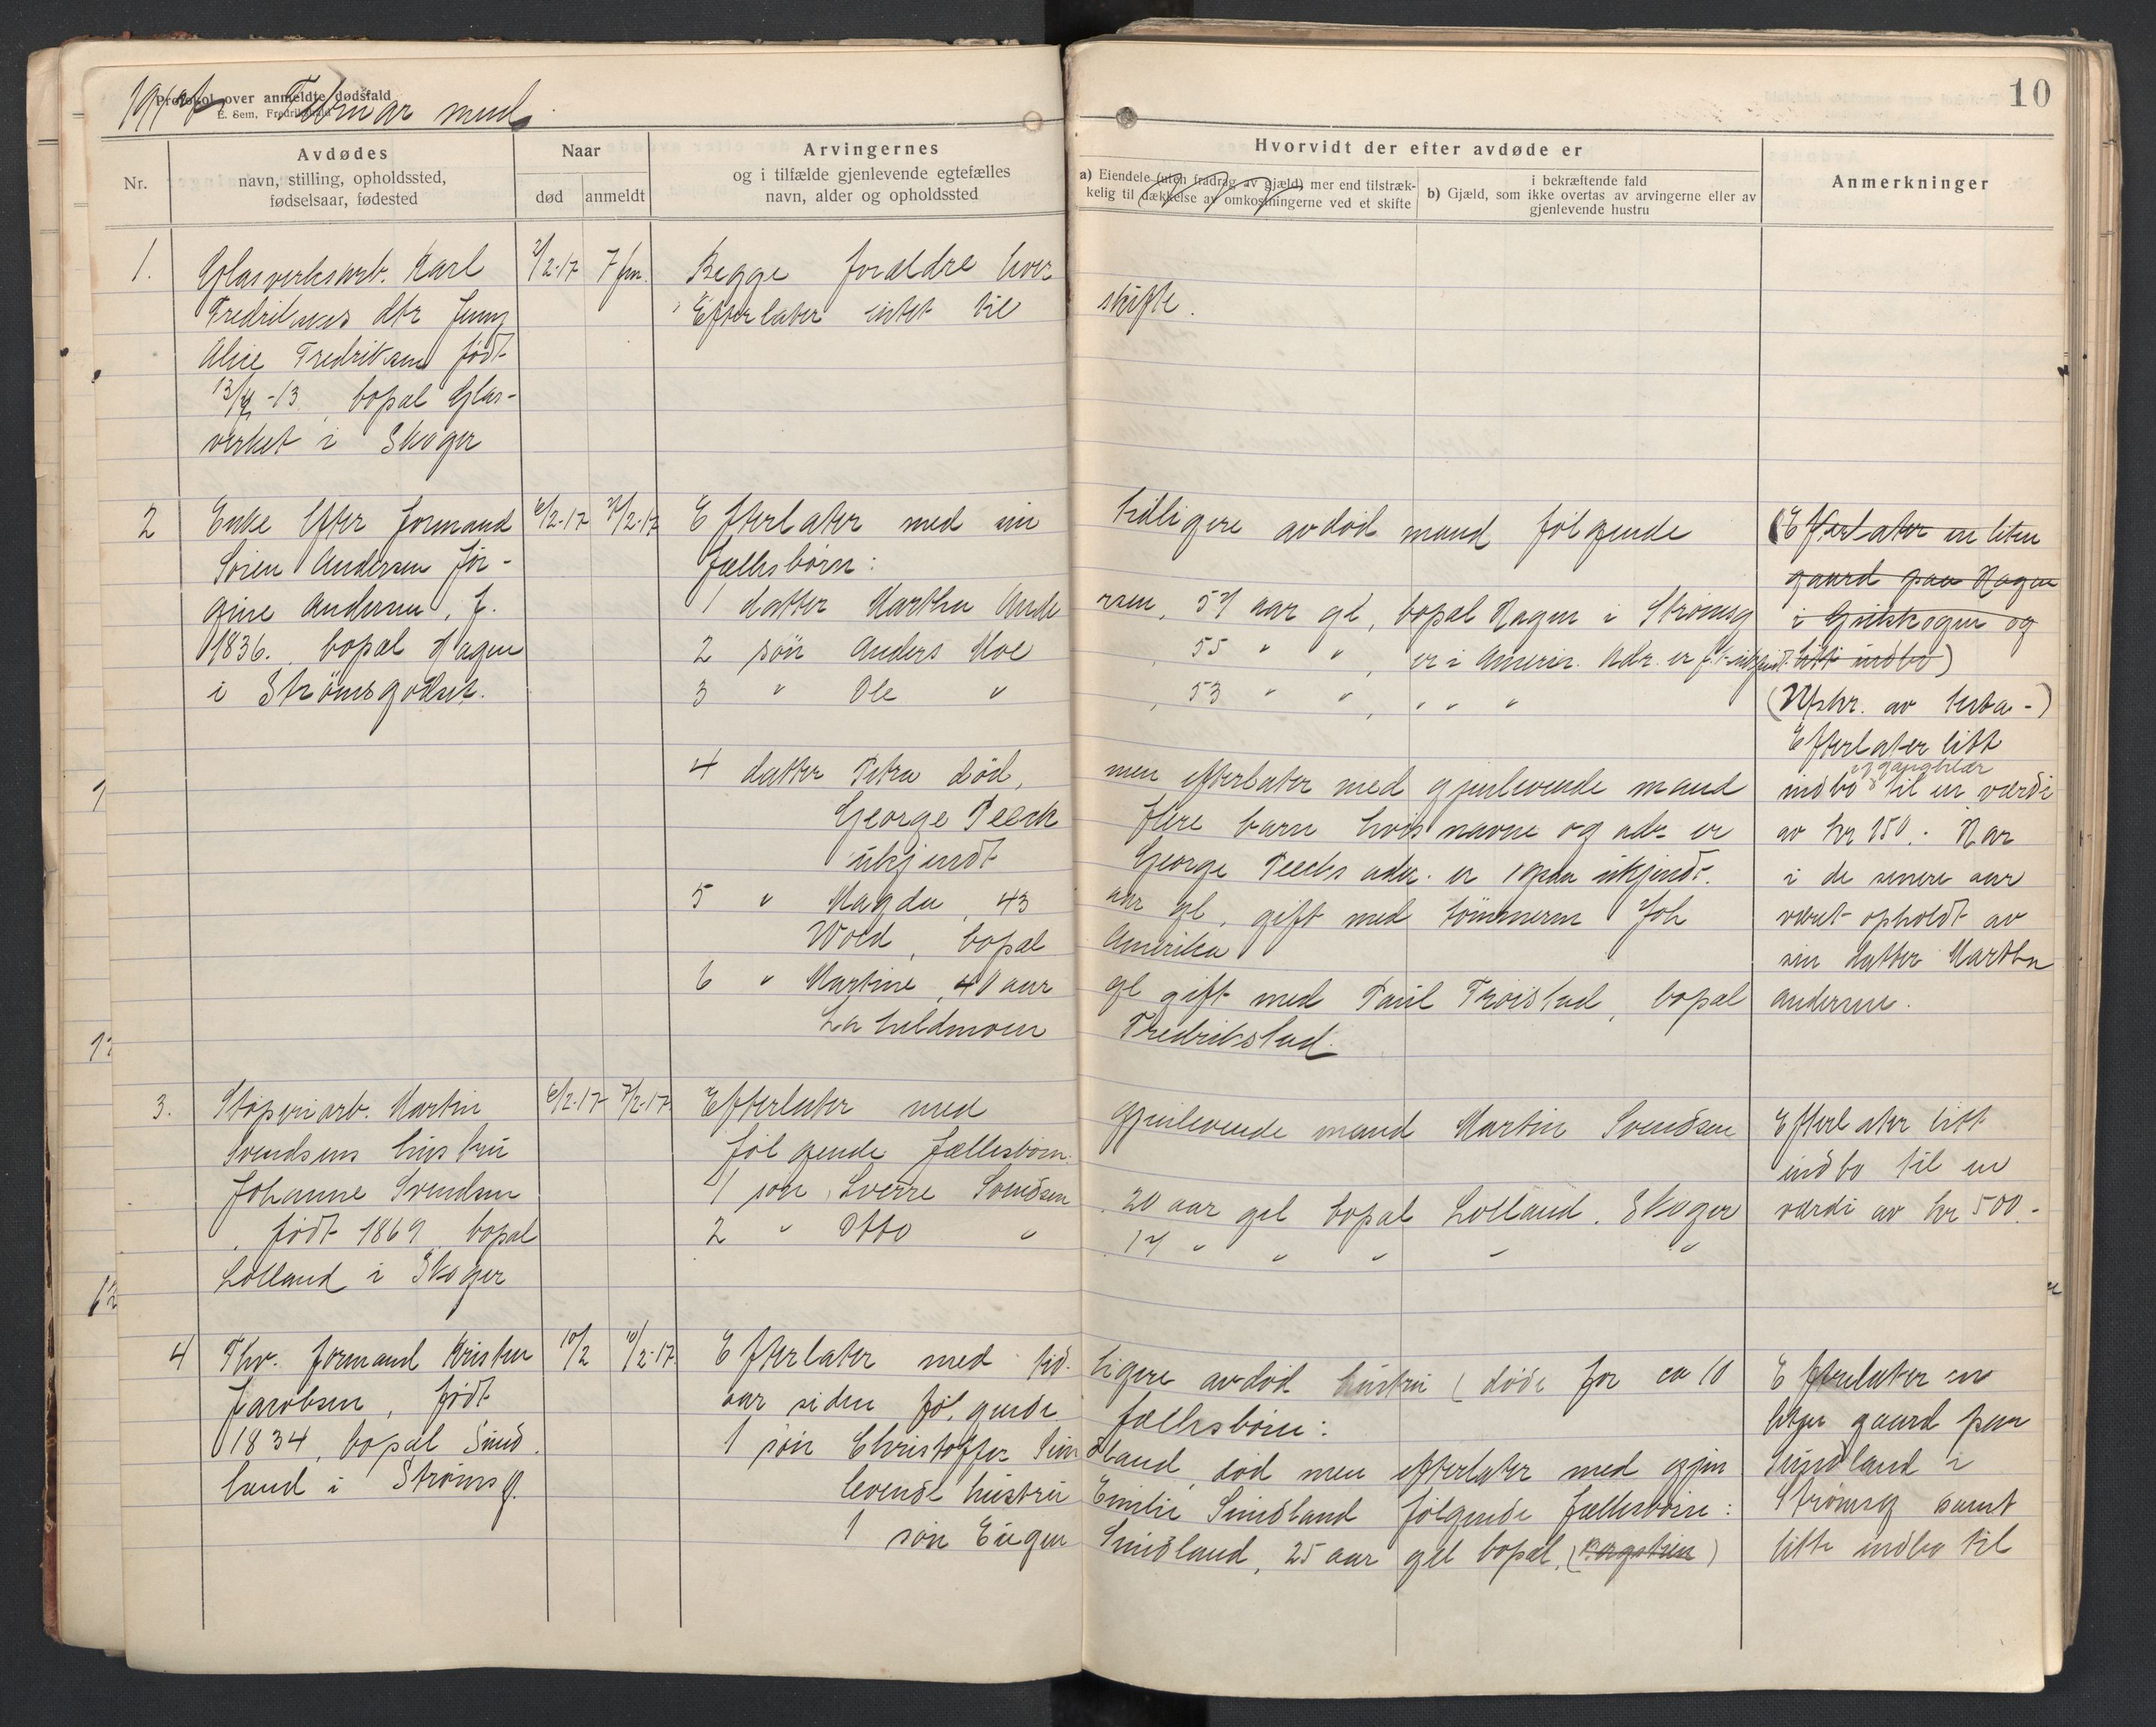 Februar mnd.
Protokol over anmeldte dødsfald
E. Sem, Fredrikshald
10
Nr.
Avdødes
navn, stilling, opholdssted,
fødselsaar, fødested
Naar
død anmeldt
Arvingernes
og i tilfælde gjenlevende egtefælles
navn, alder og opholdssted
Hvorvidt der efter avdøde er
a) Eiendele (uten fradrag av gjæld) mer end tilstræk-
kelig til dækkelse av omkostningerne ved et skifte
i bekræftende fald
b) Gjæld, som ikke overtas av arvingerne eller av
gjenlevende hustru
Anmerkninger
1. Glasverksarb. Karl
Fredriksens dtr Jenny
Alice Fredriksen født
-13 bopæl Glas-
verket i Skoger
2/2-17 7 fm.
Begge forældre lever
Efterlater intet til skifte.
2 Enke efter formand
Sören Andersen Jör-
gine Andersen, f.
1836. bopæl Hagen
i Strömsgodset.
6/2-17 7/2-17
Efterlater med sin tidligere avdöd mand fölgende
fællesbörn:
1 datter Martha Andersen, 57 aar gl, bopæl Hagen i Strömsg
2 sön Anders Moe, 55 " ", er i Amerik. Adr. er f.t. ukjendt
3 " Ole " , 53 " " , " " "
4 datter Petra död, men efterlater med gjenlevende mand
George Peeck flere barn hvis navne og adr er
ukjendt George Peecks adr. er ogsaa ukjendt.
5 " Magda, 43 aar gl, gift med tömmerm Joh
Wold, bopæl Amerika
6 " Martine, 40 aar gl gift med Paul Troistad, bopæl
Fredrikstad.
(Efterlater en liten
gaard paa Hagen
i og
litt indbo)
(Utskr. av testa-)
Efterlater litt
og gangklær
indbo til en værdi
av kr 150.- Har
i de senere aar
været opholdt av
sin datter Martha
Andersen.
3. Stöperiarb. Martin
Svendsens hustru
Johanne Svendsen
, födt 1869 bopæl
Lolland i Skoger
6/2-17 7/2-17
Efterlater med gjenlevende mand Martin Svendsen
fölgende fællesbörn:
1 sön Sverre Svendsen, 20 aar gl bopæl Lolland. Skoger
2 " Otto " , 17 " " " " "
Efterlater litt
indbo til en
værdi av kr 500.-
4 Fhv. formand Kristen
Jacobsen, födt
1834, bopæl Sund-
land i Strömsg.
10/2 10/2-17
Efterlater med tidligere avdöd hustru (döde for ca 10
aar siden fölgende fællesbörn:
1 sön Christoffer Sundland, död men efterlater med gjen
levende hustru Emilie Sundland fölgende fællesbörn:
1 sön Eugen Sundland, 25 aar gl bopæl,
Efterlater en
liten gaard paa
Sundland i
Strömsg samt
litt indbo til